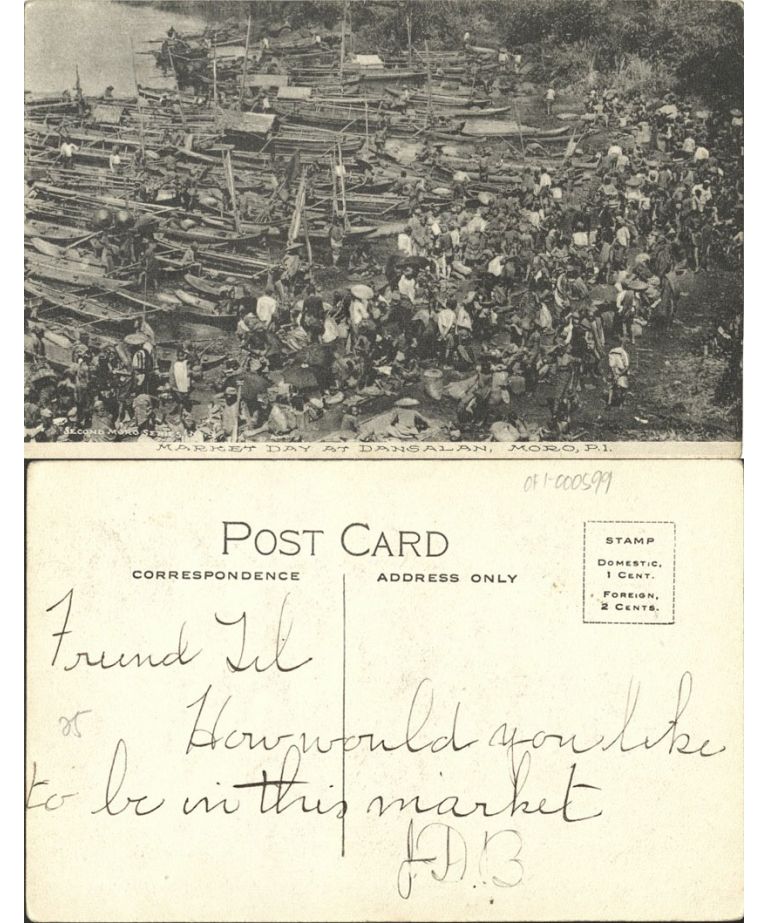 SECOND MORO SERIES
MARKET DAY AT DANSALAN, MORO, P.I.
OF1-000599
POST CARD
CORRESPONDENCE
ADDRESS ONLY
STAMP
DOMESTIC,
1 CENT.
FOREIGN,
2 CENTS.
Friend Lil
25
How would you like
to be in this market
JDB